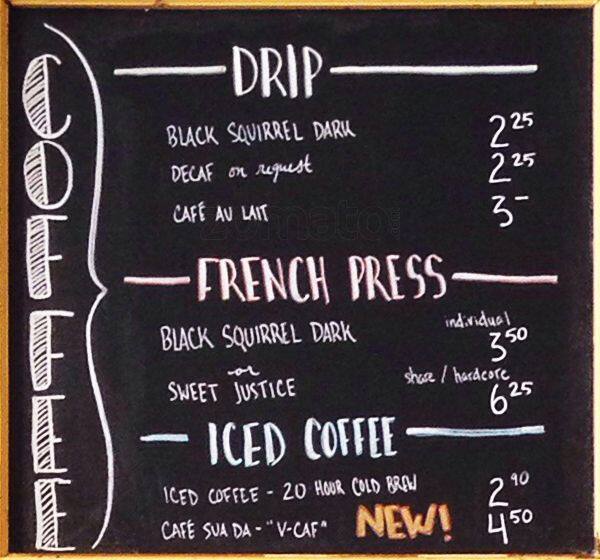 COFFEE
DRIP
BLACK SQUIRREL DARK 2 25
DECAF on request 2 25
CAFÉ AU LAIT 3 –
zomato
FRENCH PRESS
individual
BLACK SQUIRREL DARK 3 50
or
share / hardcore
SWEET JUSTICE 6 25
ICED COFFEE
ICED COFFEE - 20 HOUR COLD BREW 2 90
CAFÉ SUA DA - "V-CAF" NEW! 4 50